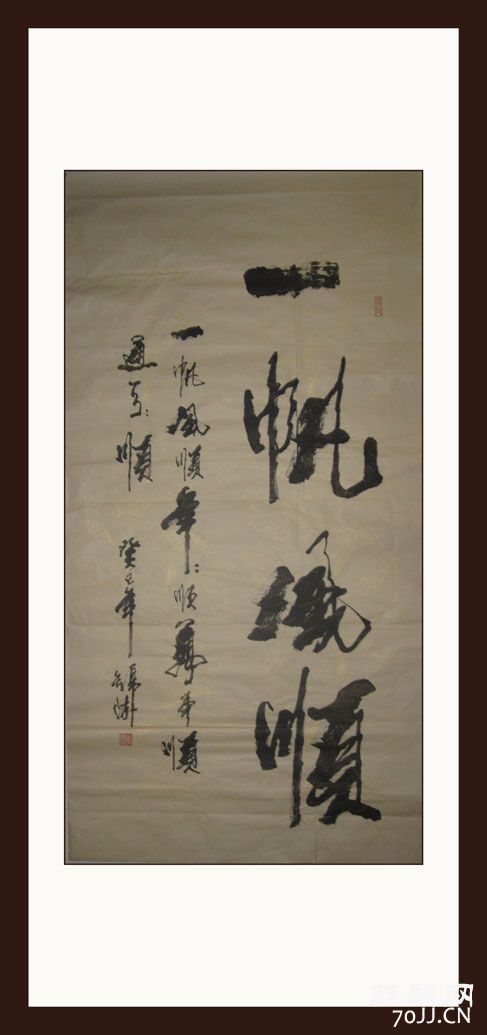 一帆風順
一帆風順年年順萬事順
道道順
癸巳年
网
70JJ.CN